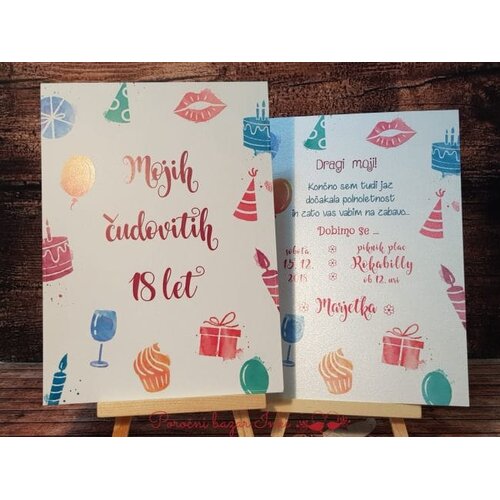 Mojih
čudovitih
18 let
Dragi moji!
Končno sem tudi jaz
dočakala polnoletnost
in zato vas vabim na zabavo...
Dobimo se ...
sobota
15. 12.
2018
piknik plac
Rokabilly
ob 12. uri
Marjetka
Poročni bazar